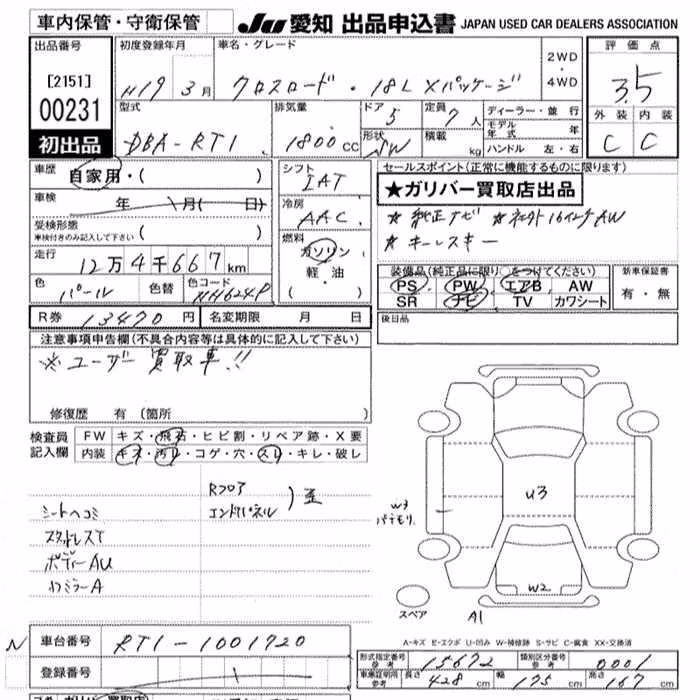 車内保管・守衛保管
JU 愛知 出品申込書 JAPAN USED CAR DEALERS ASSOCIATION
出品番号 [2151] 00231 初出品
初度登録年月 H19 3月
車名・グレード クロスロード・18L Xパッケージ
2WD・4WD
評価点 3.5
外装 内装
C C
型式 DBA-RT1
排気量 1800cc
ドア 5
形状 SW
定員 7人
積載 kg
ディーラー・並行
モデル年式 年
ハンドル 左・右
車歴 自家用・( )
車検 年 月( 日)
受検形態 ( )
車検付きのみ記入して下さい
走行 12万4千667km
色 パール 色替 色コード NH624P
シフト IAT
冷房 AAC
燃料 ガソリン 軽油 ( )
セールスポイント(正常に機能するものに限ります)
★ガリバー買取店出品
★純正ナビ ★社外16インチAW
★キーレスキー
装備品(純正品に限り○をつけてください)
PS PW エアB AW
SR ナビ TV カワシート
新車保証書 有・無
後日品
R券 13470円 名変期限 月 日
注意事項申告欄(不具合内容等は具体的に記入して下さい)
※ユーザー買取車!!
修復歴 有(箇所 )
検査員記入欄
FW キズ・飛石・ヒビ割・リペア跡・X要
内装 キズ・汚レ・コゲ・穴・スレ・キレ・破レ
Rフロア
エンドパネル
)歪
シートヘコミ
スタッドレスT
ボディーAU
ワミラーA
U3
W3
パテモリ
W2
A1
スペア
A-キズ E-エクボ U-凹み W-補修跡 S-サビ C-腐食 XX-交換済
N 車台番号 RT1-1001720
登録番号
形式指定番号 参考 15672
類別区分番号 参考 0001
車庫証明用 参考 長さ 428cm 幅 175cm 高さ 167cm
ガリバー買取店